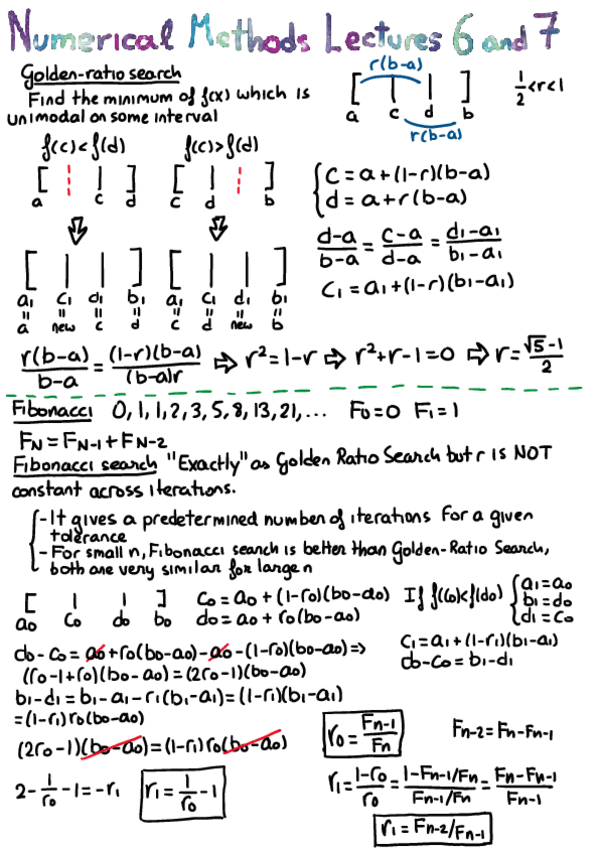 Numerical Methods Lectures 6 and 7
Golden-ratio search
Find the minimum of f(x) which is
unimodal on some interval
r(b-a)
[ | | ]
a c d b
r(b-a)
1/2<r<1
f(c)<f(d) f(c)>f(d)
[ ¦ | ] [ | ¦ ]
a c d c d b
[ | | ] [ | | ]
a₁ c₁ d₁ b₁ a₁ c₁ d₁ b₁
= = = = = = = =
a new c d c d new b
{ c=a+(1-r)(b-a)
d=a+r(b-a)
(d-a)/(b-a) = (c-a)/(d-a) = (d₁-a₁)/(b₁-a₁)
c₁=a₁+(1-r)(b₁-a₁)
r(b-a)/(b-a) = (1-r)(b-a)/((b-a)r) ⇒ r²=1-r ⇒ r²+r-1=0 ⇒ r=(√5-1)/2
Fibonacci 0, 1, 1, 2, 3, 5, 8, 13, 21, ... F₀=0 F₁=1
F_N=F_N-1+F_N-2
Fibonacci search "Exactly" as Golden Ratio Search but r is NOT
constant across iterations.
{ -It gives a predetermined number of iterations for a given
tolerance
-For small n, Fibonacci search is better than Golden-Ratio Search,
both are very similar for large n
[ | | ]
a₀ c₀ d₀ b₀
c₀=a₀+(1-r₀)(b₀-a₀)
d₀=a₀+r₀(b₀-a₀)
If f(c₀)<f(d₀) { a₁=a₀
b₁=d₀
d₁=c₀
d₀-c₀=a₀+r₀(b₀-a₀)-a₀-(1-r₀)(b₀-a₀)=>
(r₀-1+r₀)(b₀-a₀)=(2r₀-1)(b₀-a₀)
c₁=a₁+(1-r₁)(b₁-a₁)
d₀-c₀=b₁-d₁
b₁-d₁=b₁-a₁-r₁(b₁-a₁)=(1-r₁)(b₁-a₁)
=(1-r₁)r₀(b₀-a₀)
(2r₀-1)(b₀-a₀)=(1-r₁)r₀(b₀-a₀)
r₀=Fn-1/Fn
Fn-2=Fn-Fn-1
2-1/r₀-1=-r₁
r₁=1/r₀-1
r₁=(1-r₀)/r₀=(1-Fn-1/Fn)/(Fn-1/Fn)=(Fn-Fn-1)/Fn-1
r₁=Fn-2/Fn-1